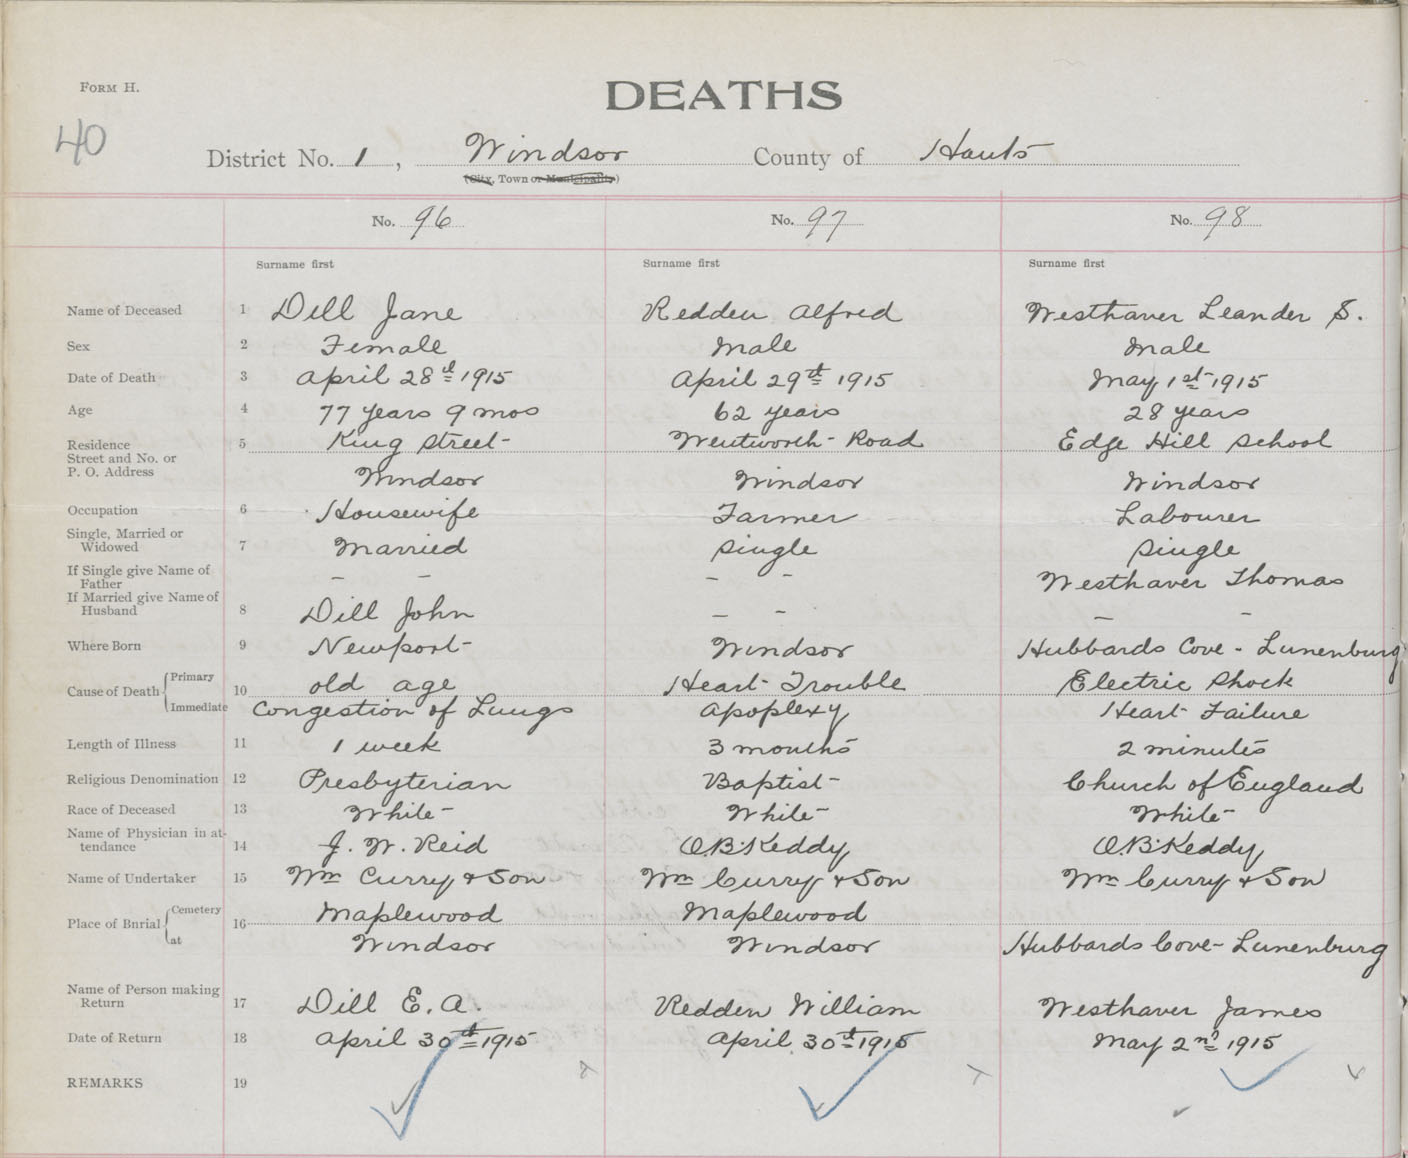 FORM H.
DEATHS
40
District No. 1, Windsor County of Hants
(City, Town or Municipality)
No. 96 No. 97 No. 98
Surname first Surname first Surname first
Name of Deceased 1 Dill Jane Redden Alfred Westhaver Leander S.
Sex 2 Female Male Male
Date of Death 3 April 28th 1915 April 29th 1915 May 1st 1915
Age 4 77 years 9 mos 62 years 28 years
Residence 5 King Street Wentworth Road Edge Hill School
Street and No. or
P. O. Address Windsor Windsor Windsor
Occupation 6 Housewife Farmer Labourer
Single, Married or
Widowed 7 Married Single Single
If Single give Name of
Father - - - - Westhaver Thomas
If Married give Name of
Husband 8 Dill John - - - -
Where Born 9 Newport Windsor Hubbards Cove - Lunenburg
Cause of Death { Primary 10 old age Heart Trouble Electric Shock
Immediate Congestion of Lungs Apoplexy Heart Failure
Length of Illness 11 1 week 3 months 2 minutes
Religious Denomination 12 Presbyterian Baptist Church of England
Race of Deceased 13 White White White
Name of Physician in at-
tendance 14 J. W. Reid O.B. Keddy O.B. Keddy
Name of Undertaker 15 Wm Curry & Son Wm Curry & Son Wm Curry & Son
Place of Burial { Cemetery 16 Maplewood Maplewood
at Windsor Windsor Hubbards Cove - Lunenburg
Name of Person making
Return 17 Dill E. A. Redden William Westhaver James
Date of Return 18 April 30th 1915 April 30th 1915 May 2nd 1915
REMARKS 19